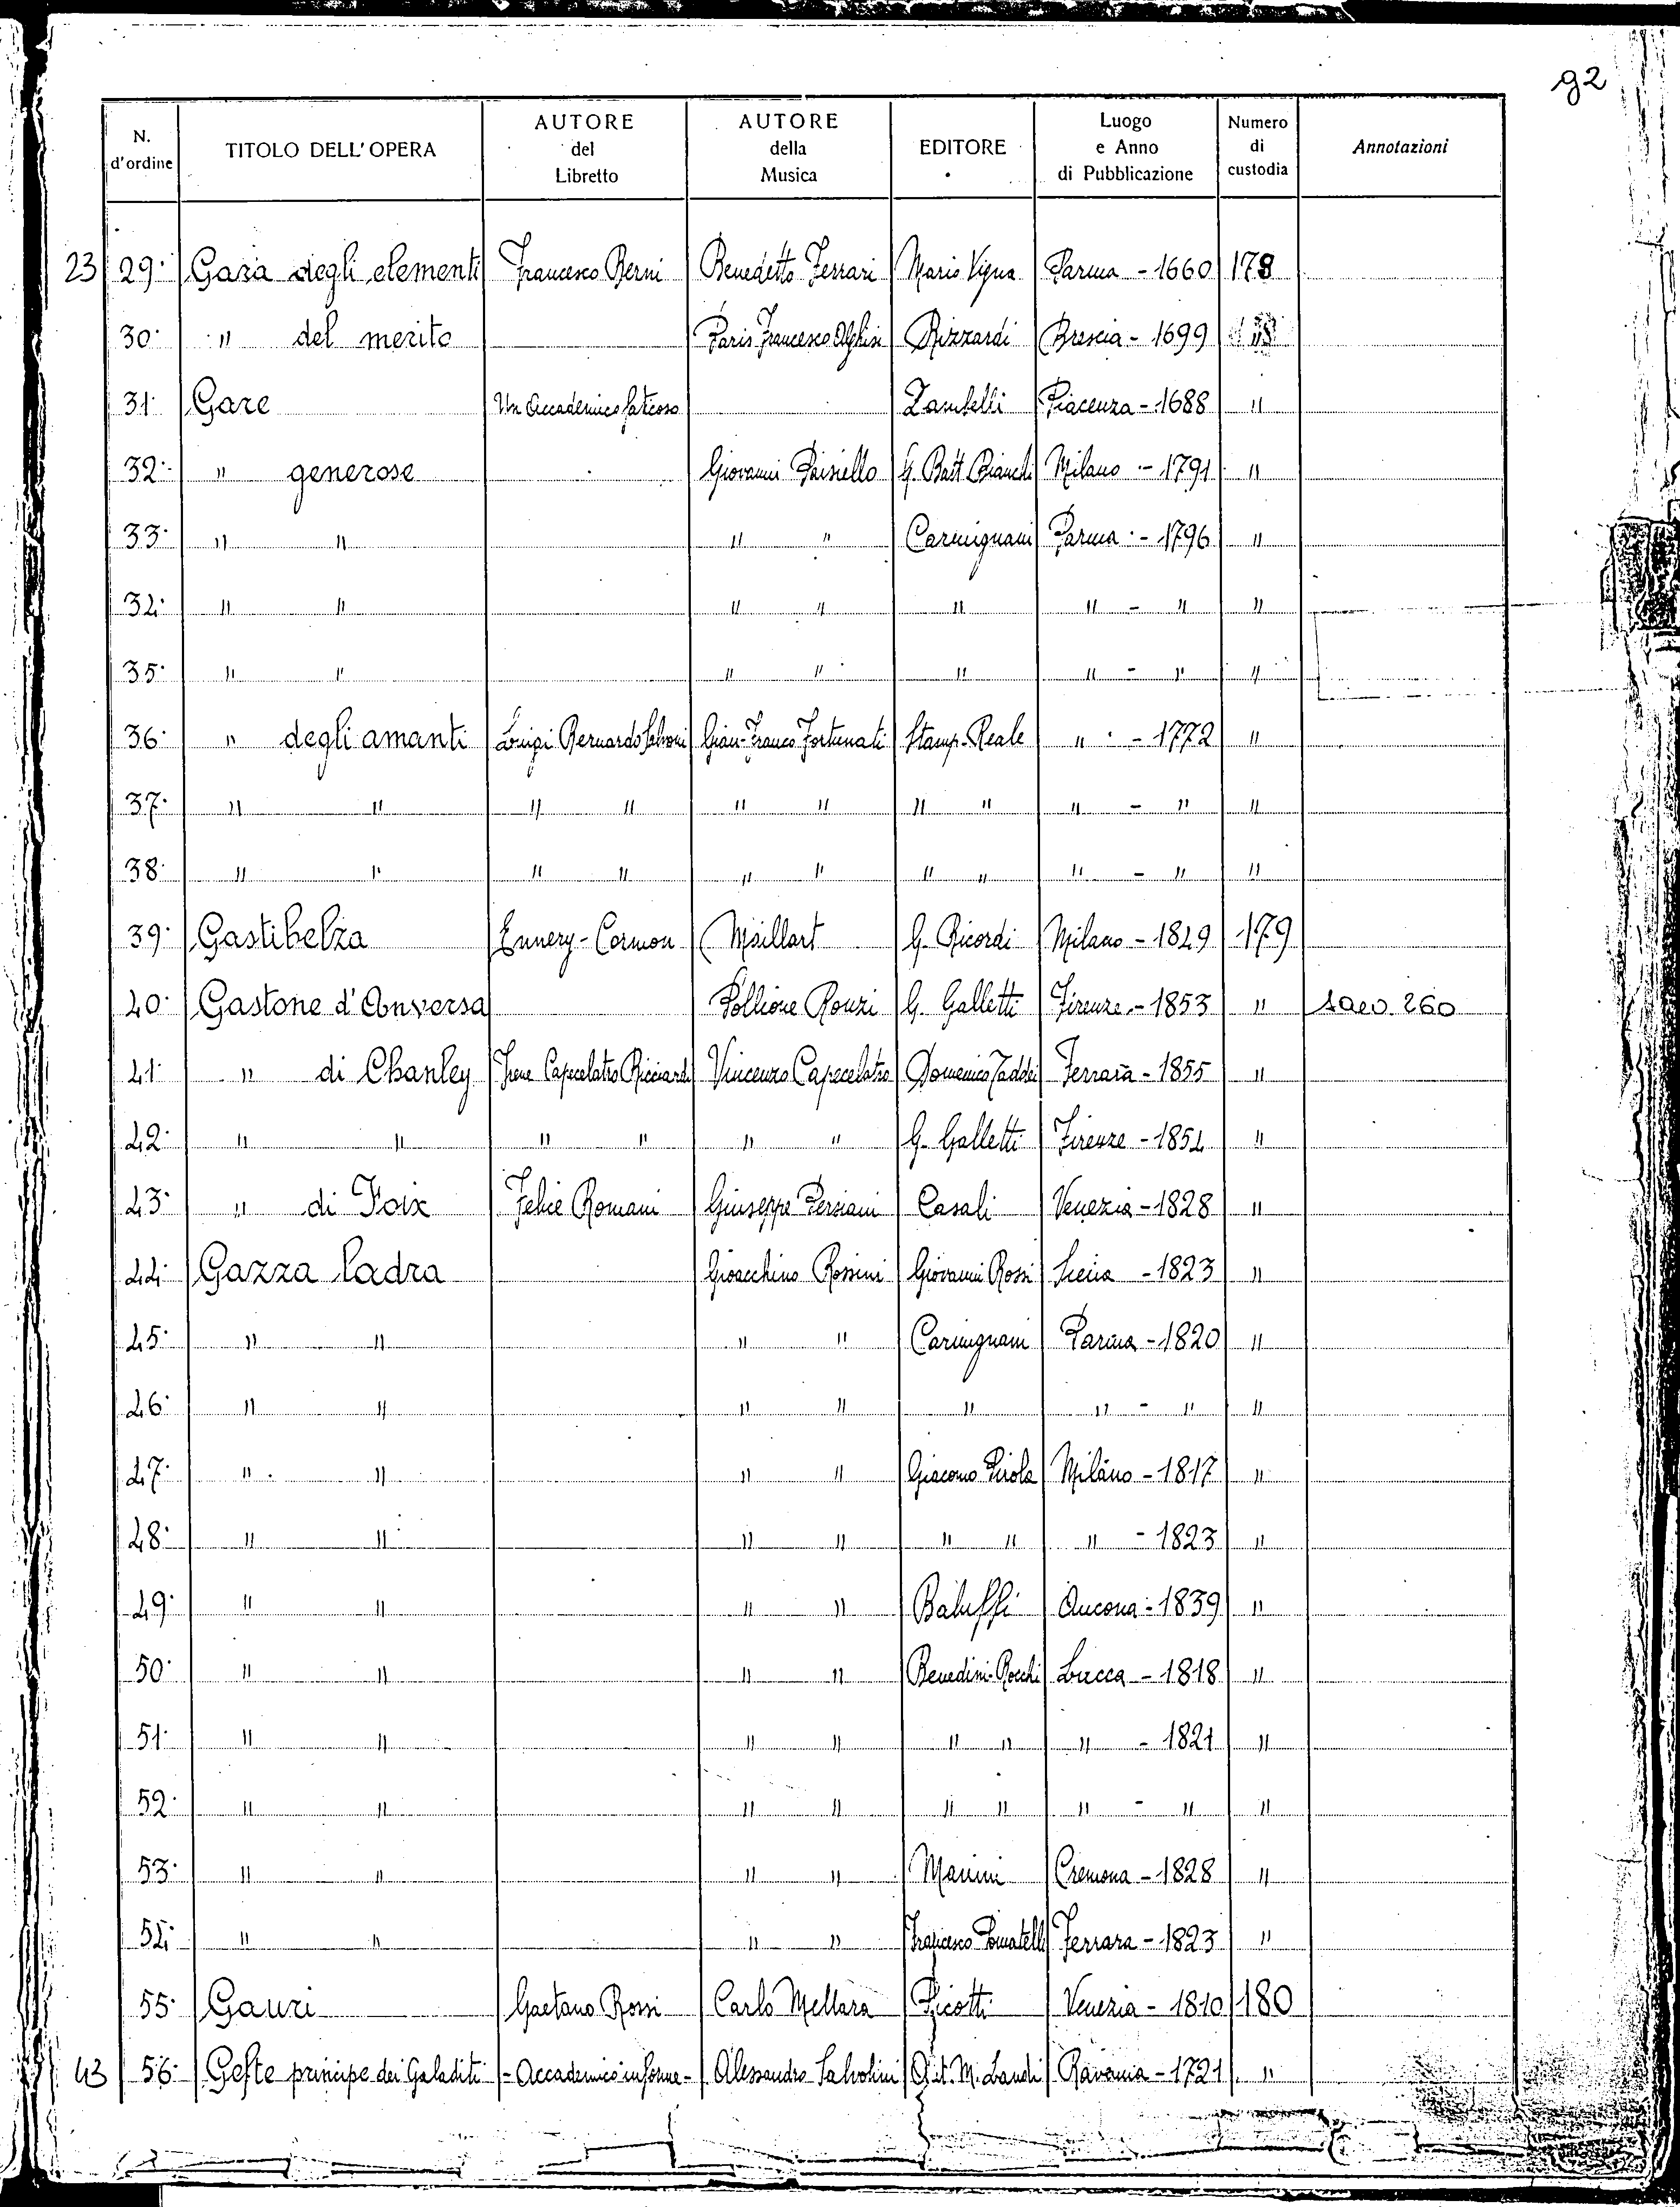 92
N. d'ordine | TITOLO DELL' OPERA | AUTORE del Libretto | AUTORE della Musica | EDITORE | Luogo e Anno di Pubblicazione | Numero di custodia | Annotazioni
23 29. Gara degli elementi Francesco Berni Benedetto Ferrari Mario Vigna Parma - 1660 178
30. " del merito Paris Francesco Alghisi Rizzardi Brescia - 1699
31. Gare Un Accademico faticoso Zambelli Piacenza - 1688 "
32. " generose Giovanni Paisiello G. Batt. Bianchi Milano - 1791 "
33. " " " " Carmignani Parma - 1796 "
34. " " " " " " - " "
35. " " " " " " - " "
36. " degli amanti Luigi Bernardo Salvoni Gian-Franco Fortunati Stamp. Reale " - 1772 "
37. " " " " " " " " " - " "
38. " " " " " " " " " - " "
39. Gastibelza Ennery - Cormon Maillart G. Ricordi Milano - 1849 179
40. Gastone d'Anversa Pollione Ronzi G. Galletti Firenze - 1853 " 260
41. " di Chanley Irene Capecelatro Ricciardi Vincenzo Capecelatro Domenico Taddei Ferrara - 1855 "
42. " " " " " " G. Galletti Firenze - 1854 "
43. " di Foix Felice Romani Giuseppe Persiani Casali Venezia - 1828 "
44. Gazza ladra Gioacchino Rossini Giovanni Rossi - 1823 "
45. " " " " Carmignani Parma - 1820 "
46. " " " " " " - " "
47. " " " " Giacomo Pirola Milano - 1817 "
48. " " " " " " " - 1823 "
49. " " " " Baluffi Ancona - 1839 "
50. " " " " Benedini-Rocchi Lucca - 1818 "
51. " " " " " " " - 1821 "
52. " " " " " " " - " "
53. " " " " Manini Cremona - 1828 "
54. " " " " Francesco Pomatelli Ferrara - 1823 "
55. Gauri Gaetano Rossi Carlo Mellara Picotti Venezia - 1810 180
43 56. Gefte principe dei Galaditi - Accademico informe - Alessandro Salvolini Ant. M. Landi Ravenna - 1721 "